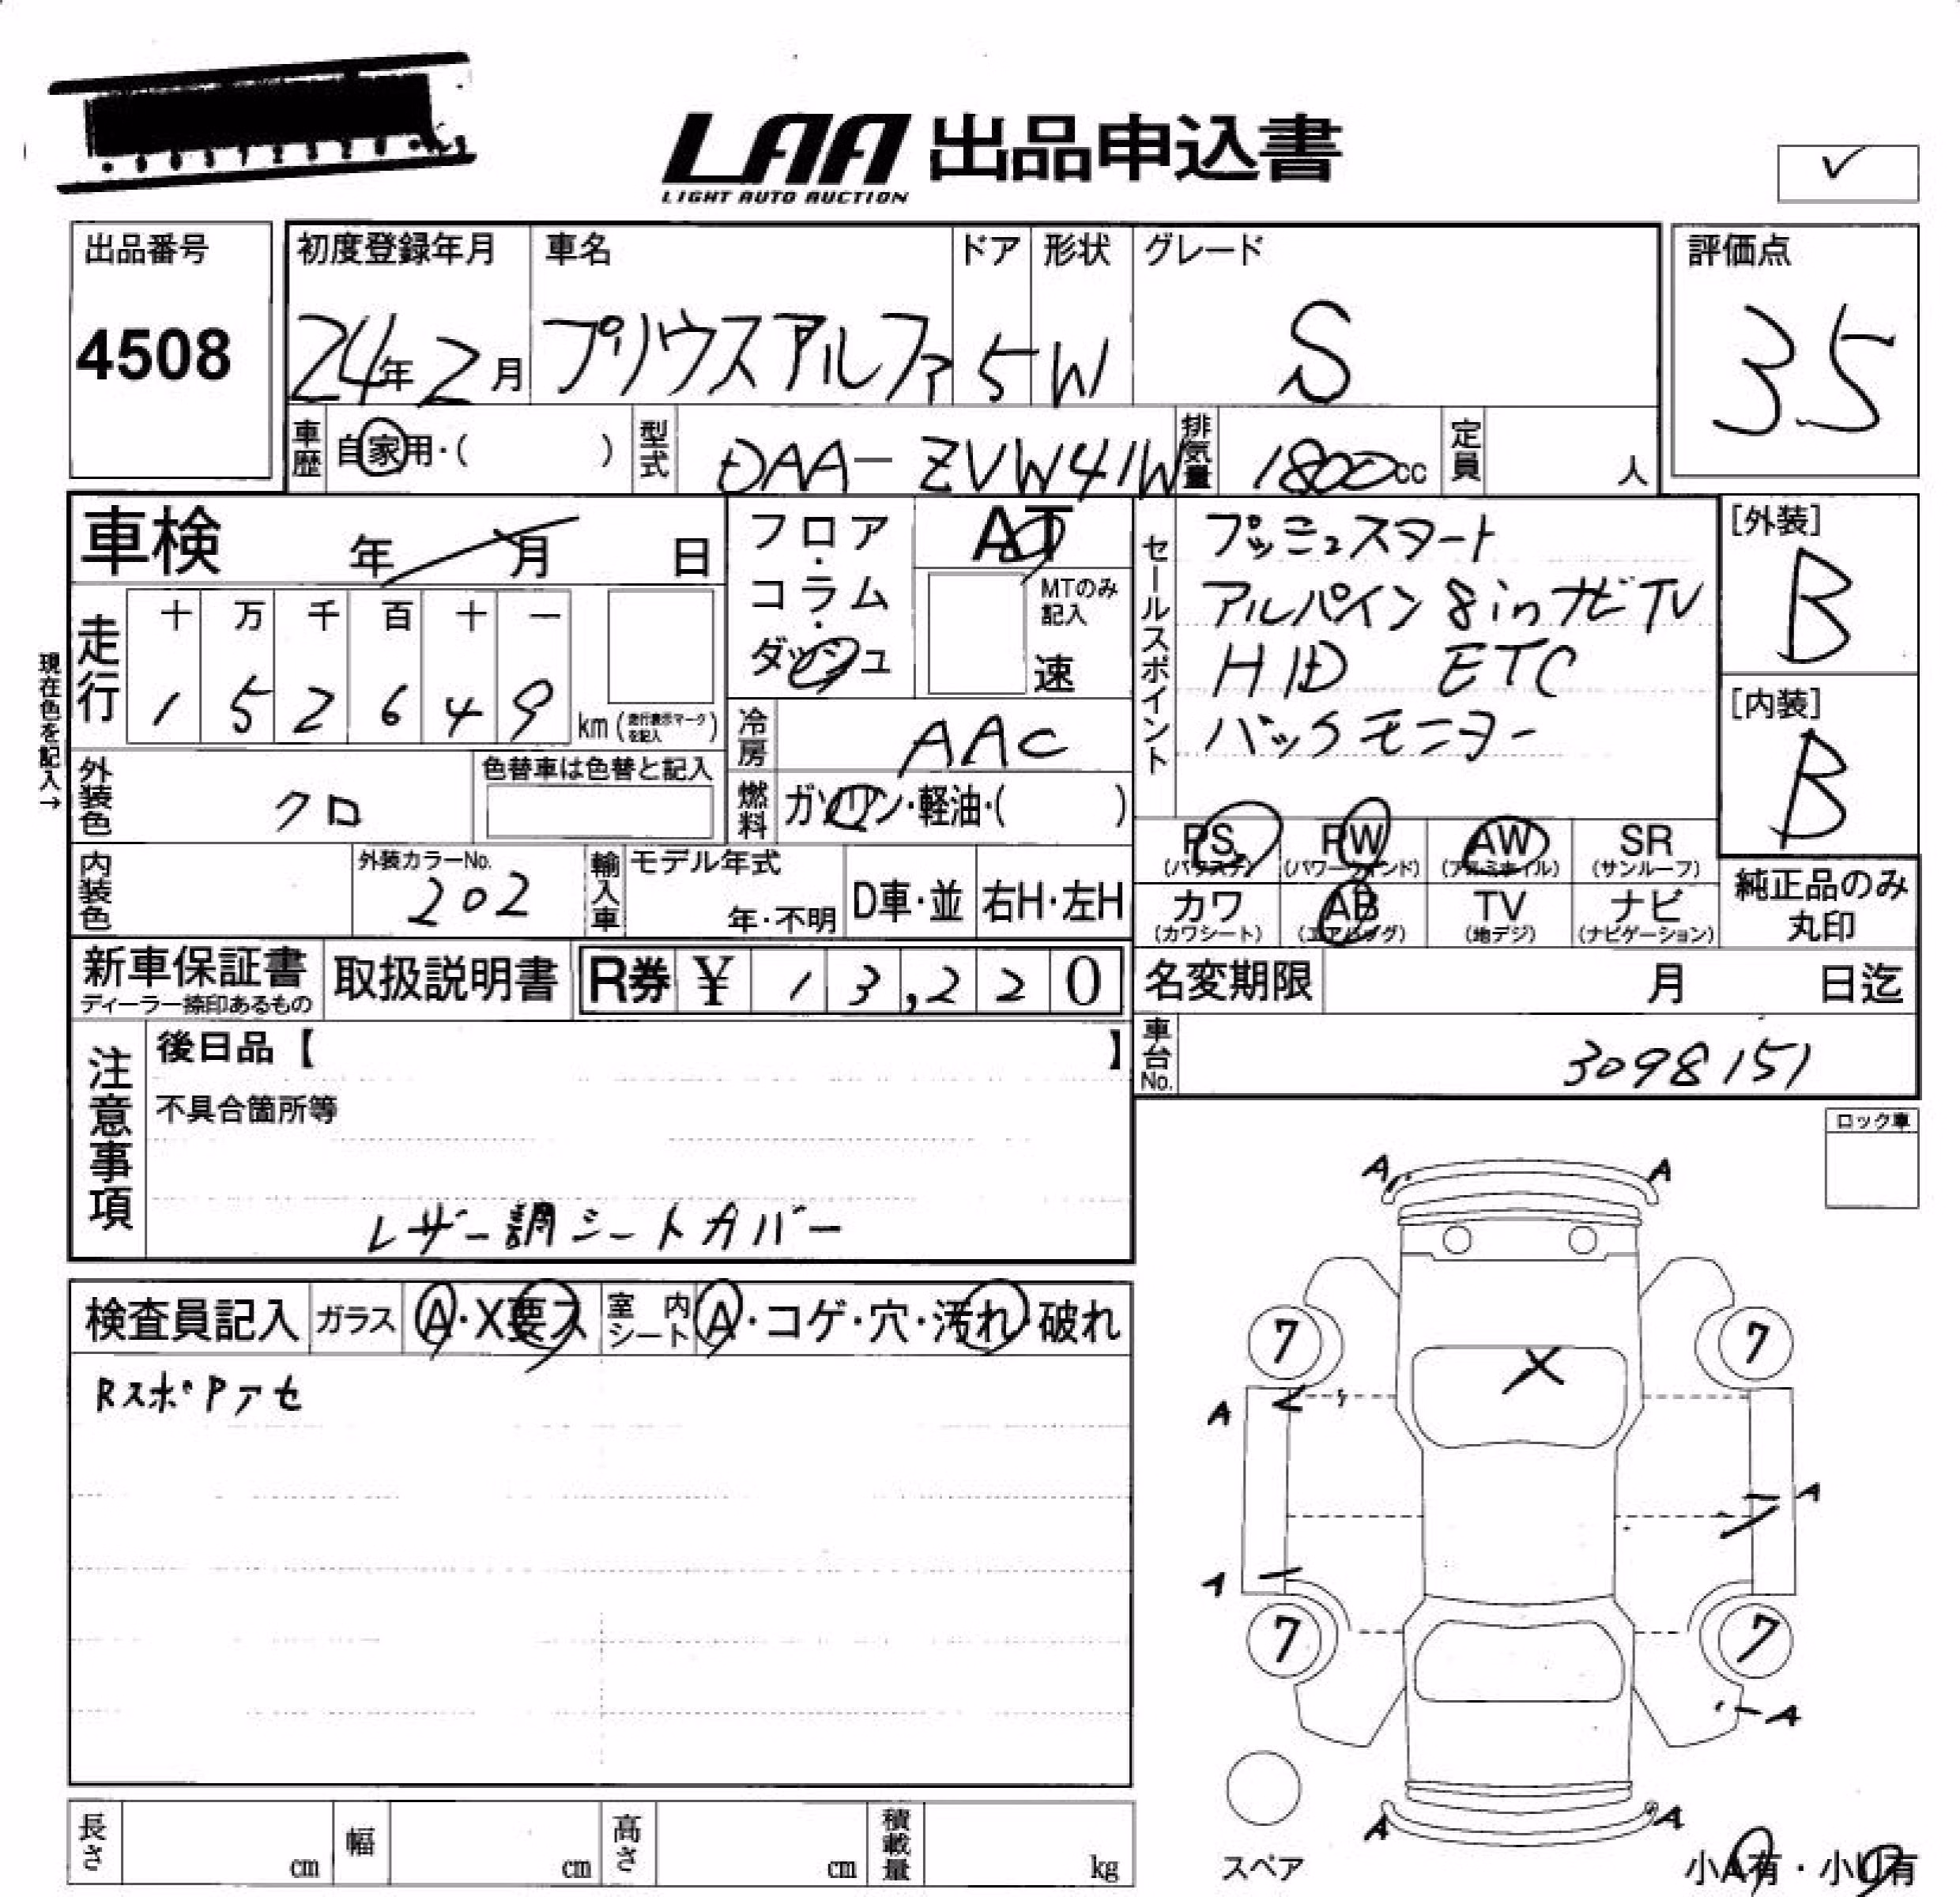 LAA 出品申込書
LIGHT AUTO AUCTION
出品番号
4508
初度登録年月
24年2月
車名
プリウスアルファ
ドア
5
形状
W
グレード
S
評価点
3.5
車歴
自家用・( )
型式
DAA-ZVW41W
排気量
1800cc
定員
人
車検 年 月 日
フロア・コラム・ダッシュ
AT
MTのみ記入
速
セールスポイント
プッシュスタート
アルパイン 8inナビTV
HID ETC
バックモニター
[外装]
B
[内装]
B
現在色を記入→
走行
十 万 千 百 十 一
1 5 2 6 4 9
km (走行表示マークを記入)
冷房
AAC
燃料
ガソリン・軽油・( )
外装色
クロ
色替車は色替と記入
PS (パワステ)
PW (パワーウィンド)
AW (アルミホイル)
SR (サンルーフ)
カワ (カワシート)
AB (エアバッグ)
TV (地デジ)
ナビ (ナビゲーション)
純正品のみ丸印
内装色
外装カラーNo.
202
輸入車
モデル年式
年・不明
D車・並
右H・左H
新車保証書
ディーラー捺印あるもの
取扱説明書
R券 ¥ 1 3,2 2 0
名変期限 月 日迄
車台No.
3098151
注意事項
後日品【 】
不具合箇所等
レザー調シートカバー
ロック車
検査員記入
ガラス
A・X要ス
室内シート
A・コゲ・穴・汚れ・破れ
RスポPアセ
A A
7 7
X
A
A
A
7 7
A
A A
スペア
小A有・小U有
長さ cm
幅 cm
高さ cm
積載量 kg